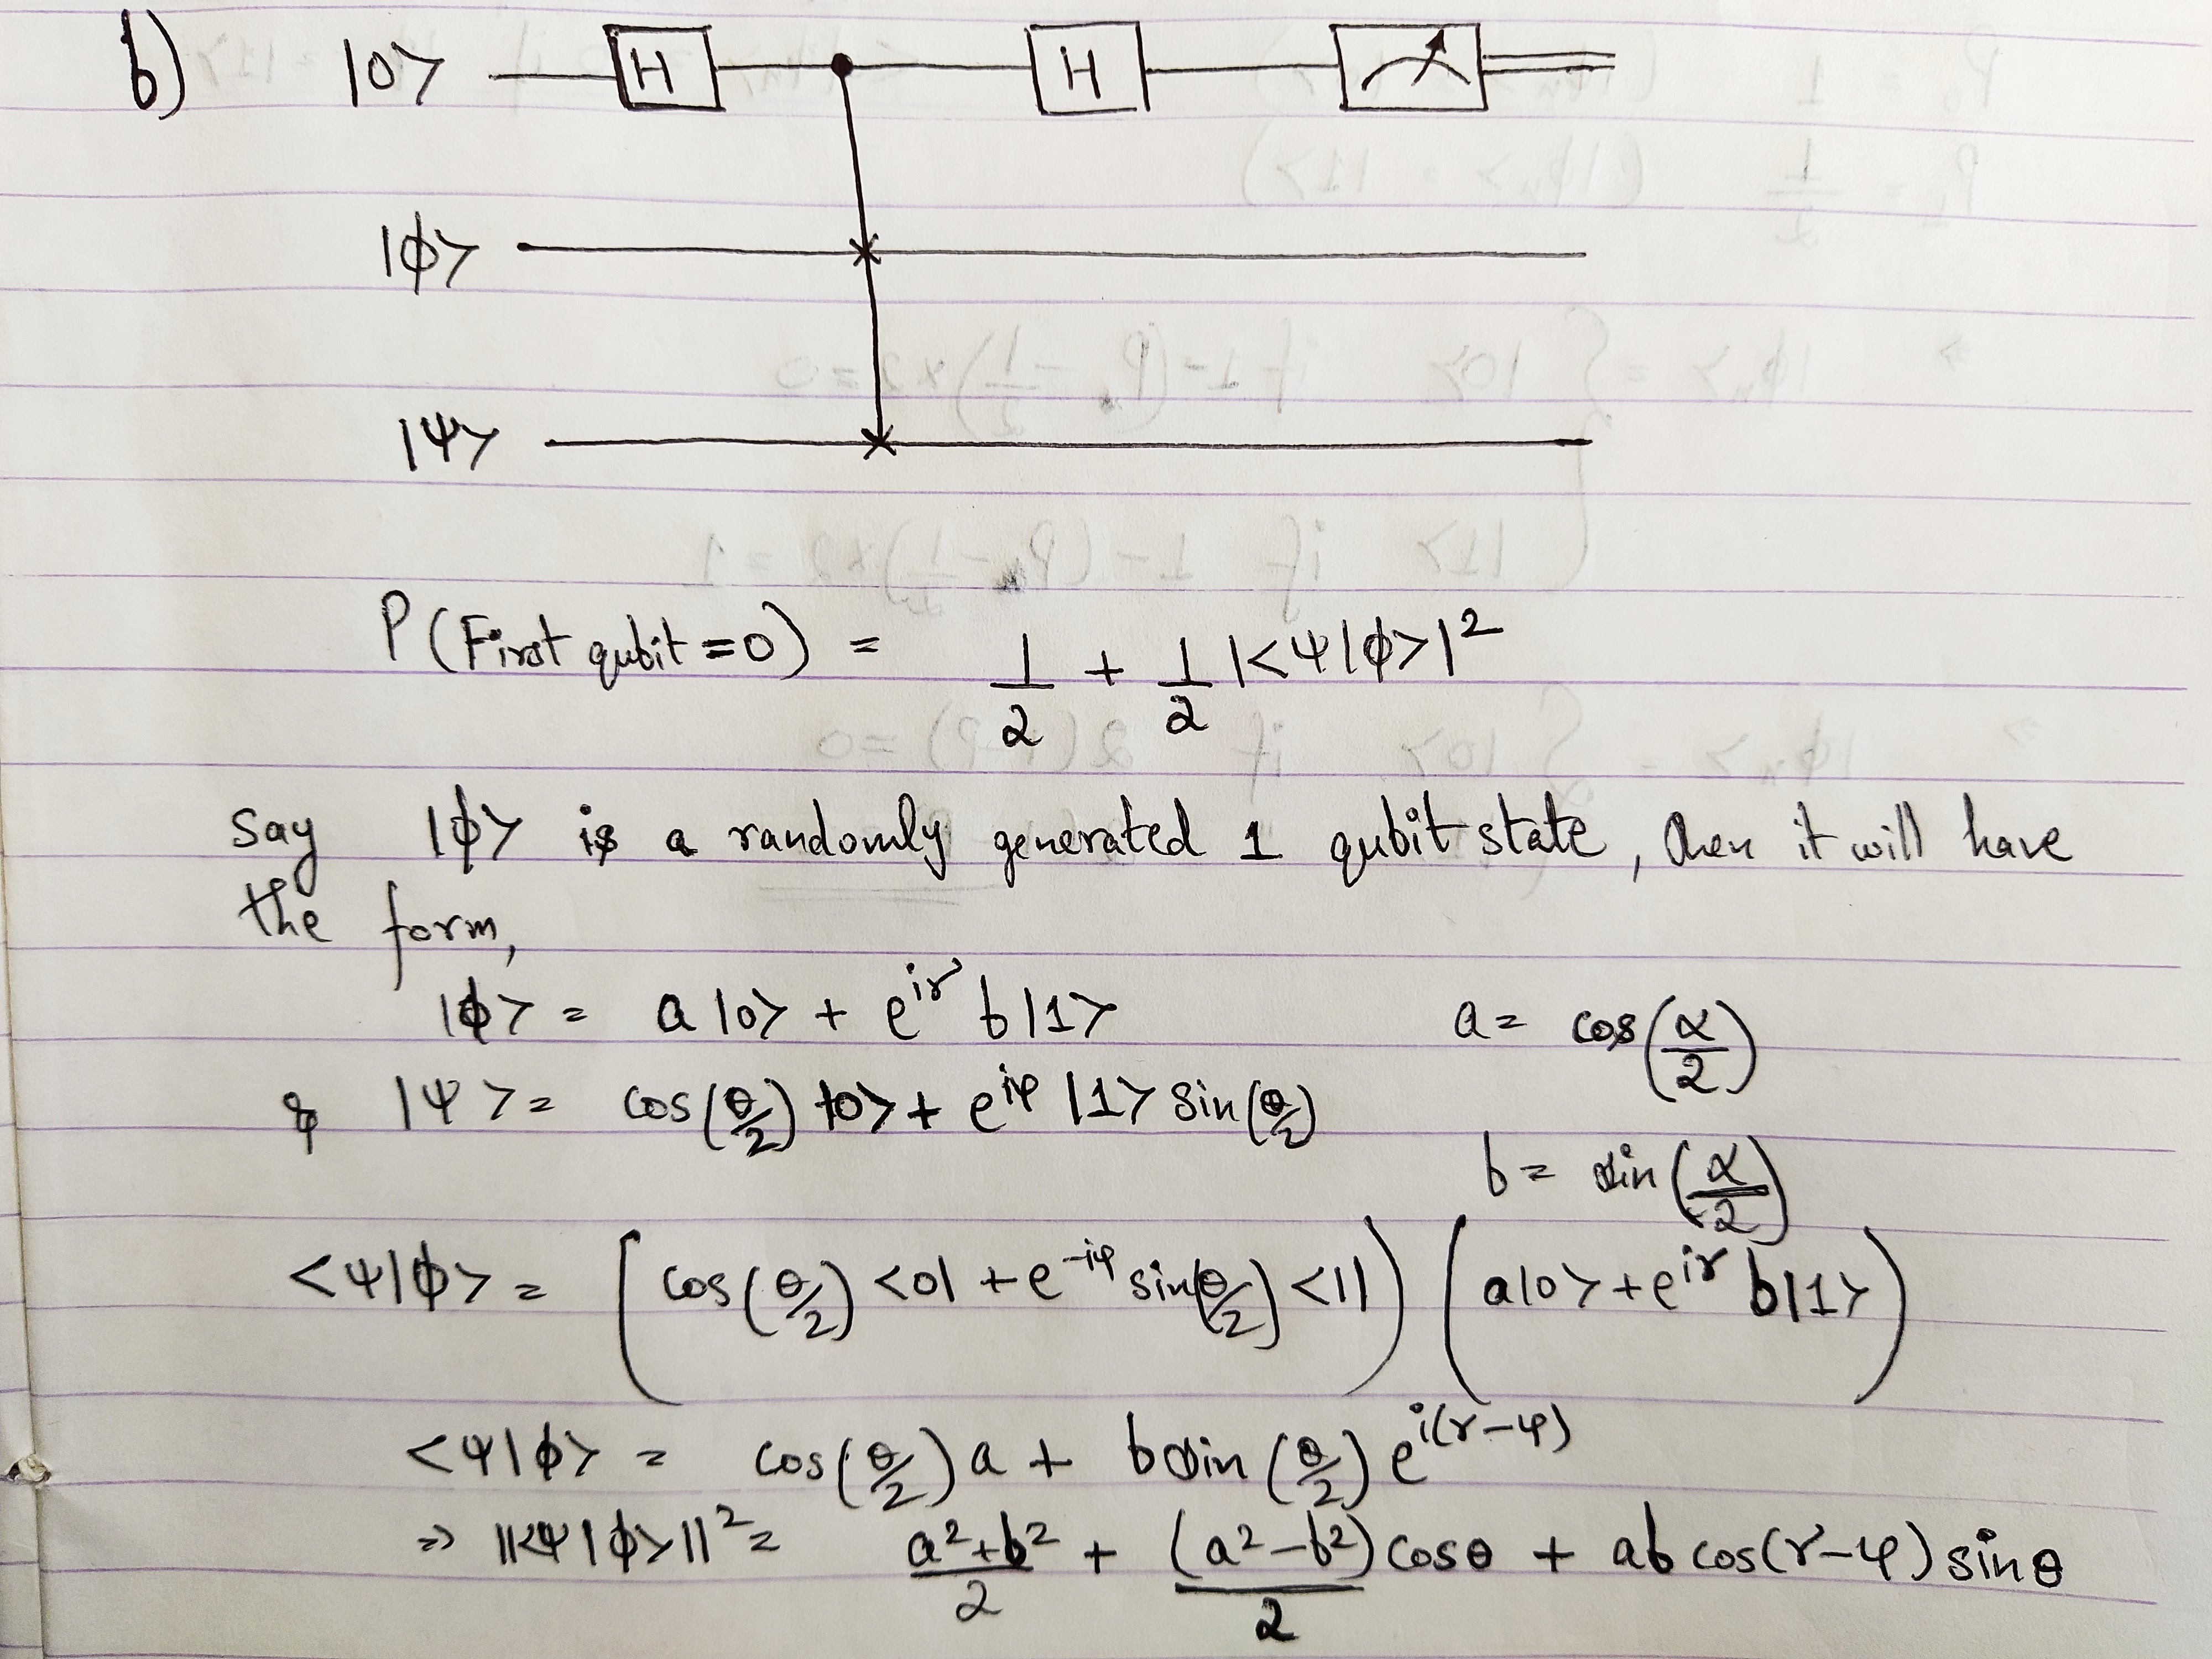 b) |0> H H
|ϕ>
|Ψ>
P (First qubit = 0) = 1/2 + 1/2 |<Ψ|ϕ>|²
Say |ϕ> is a randomly generated 1 qubit state, then it will have
the form,
|ϕ> = a |0> + e^{iγ} b |1> a = cos(α/2)
& |Ψ> = cos(θ/2) |0> + e^{iφ} |1> sin(θ/2)
b = sin(α/2)
<Ψ|ϕ> = (cos(θ/2) <0| + e^{-iφ} sin(θ/2) <1|) (a|0> + e^{iγ} b|1>)
<Ψ|ϕ> = cos(θ/2) a + b sin(θ/2) e^{i(γ-φ)}
⇒ ||<Ψ|ϕ>||² = (a²+b²)/2 + (a²-b²)/2 cosθ + ab cos(γ-φ) sinθ